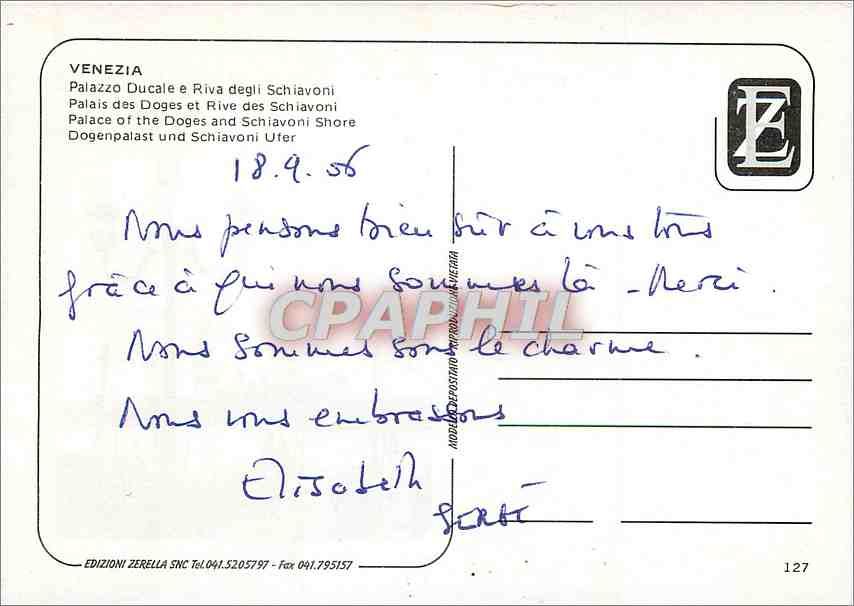 VENEZIA
Palazzo Ducale e Riva degli Schiavoni
Palais des Doges et Rive des Schiavoni
Palace of the Doges and Schiavoni Shore
Dogenpalast und Schiavoni Ufer
EZ
18.9.06
Nous pensons bien sûr à vous tous
grâce à qui nous sommes là - Merci.
Nous sommes sous le charme.
Nous vous embrassons
Elisabeth
SERGE
MODELLO DEPOSITATO RIPRODUZIONE VIETATA
CPAPHIL
EDIZIONI ZERELLA SNC Tel.041.5205797 - Fax 041.795157
127